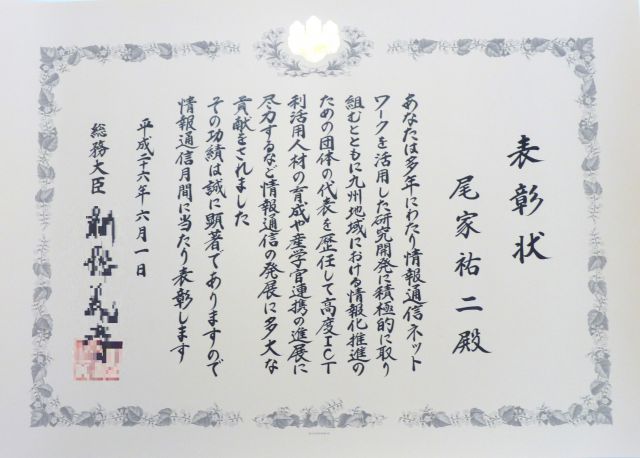 表彰状
尾家祐二殿
あなたは多年にわたり情報通信ネット
ワークを活用した研究開発に積極的に取り
組むとともに九州地域における情報化推進の
ための団体の代表を歴任して高度ICT
利活用人材の育成や産学官連携の進展に
尽力するなど情報通信の発展に多大な
貢献をされました
その功績は誠に顕著でありますので
情報通信月間に当たり表彰します
平成二十六年六月一日
総務大臣